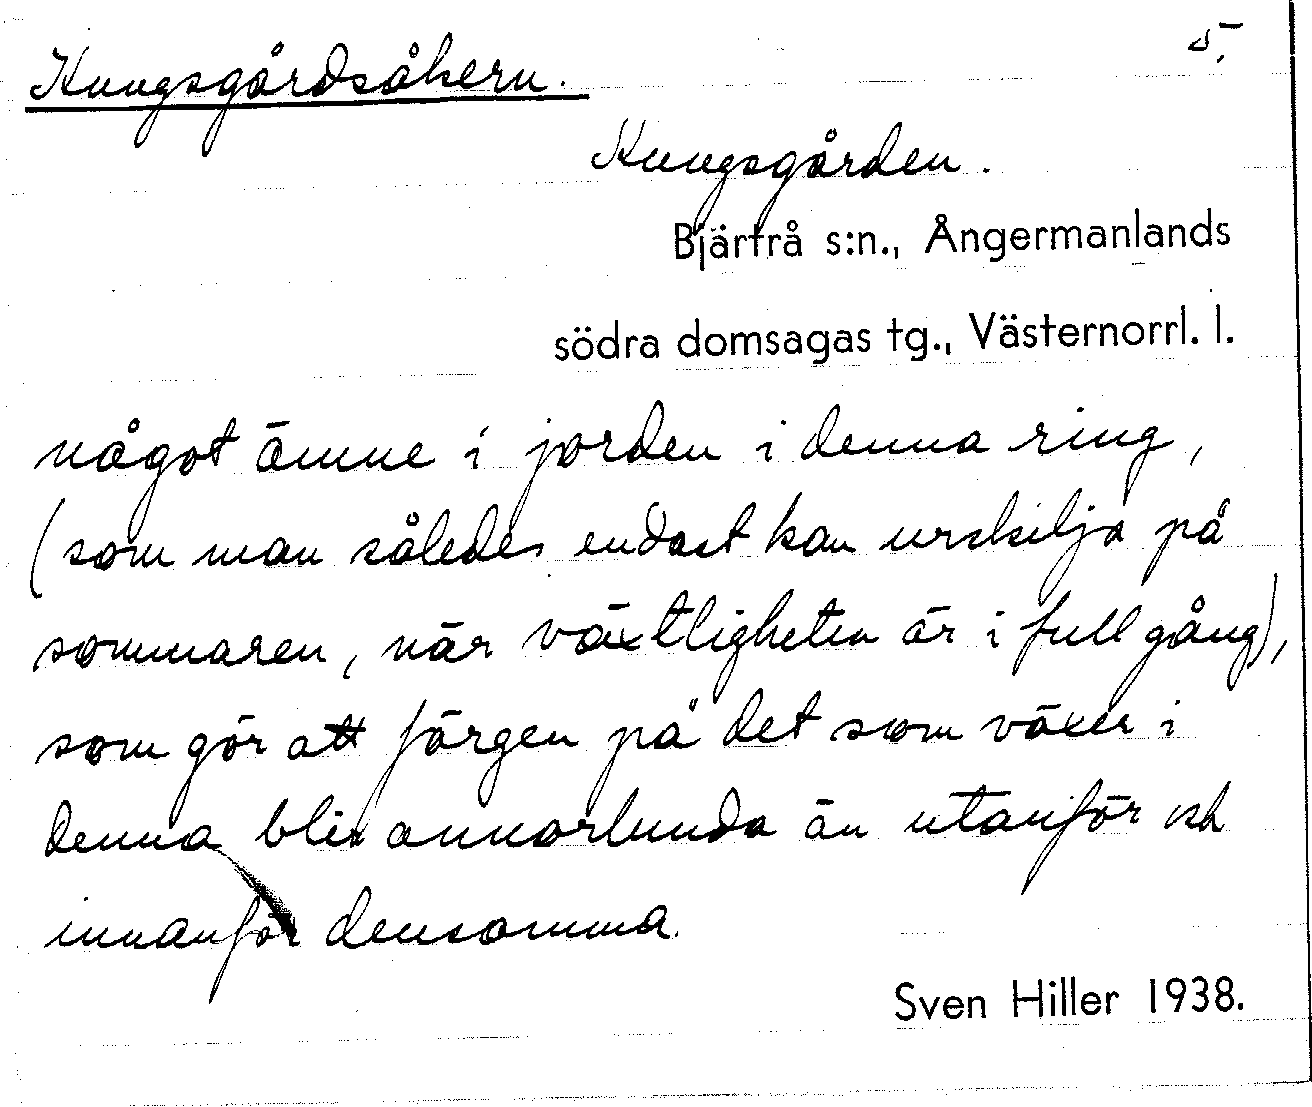 5.
Kungsgårdsåkern.
Kungsgården.
Bjärtrå s:n., Ångermanlands
södra domsagas tg., Västernorrl. l.
något ämne i jorden i denna ring,
(som man således endast kan urskilja på
sommaren, när växtligheten är i full gång),
som gör att färgen på det som växer i
denna blir annorlunda än utanför och
innanför densamma.
Sven Hiller 1938.